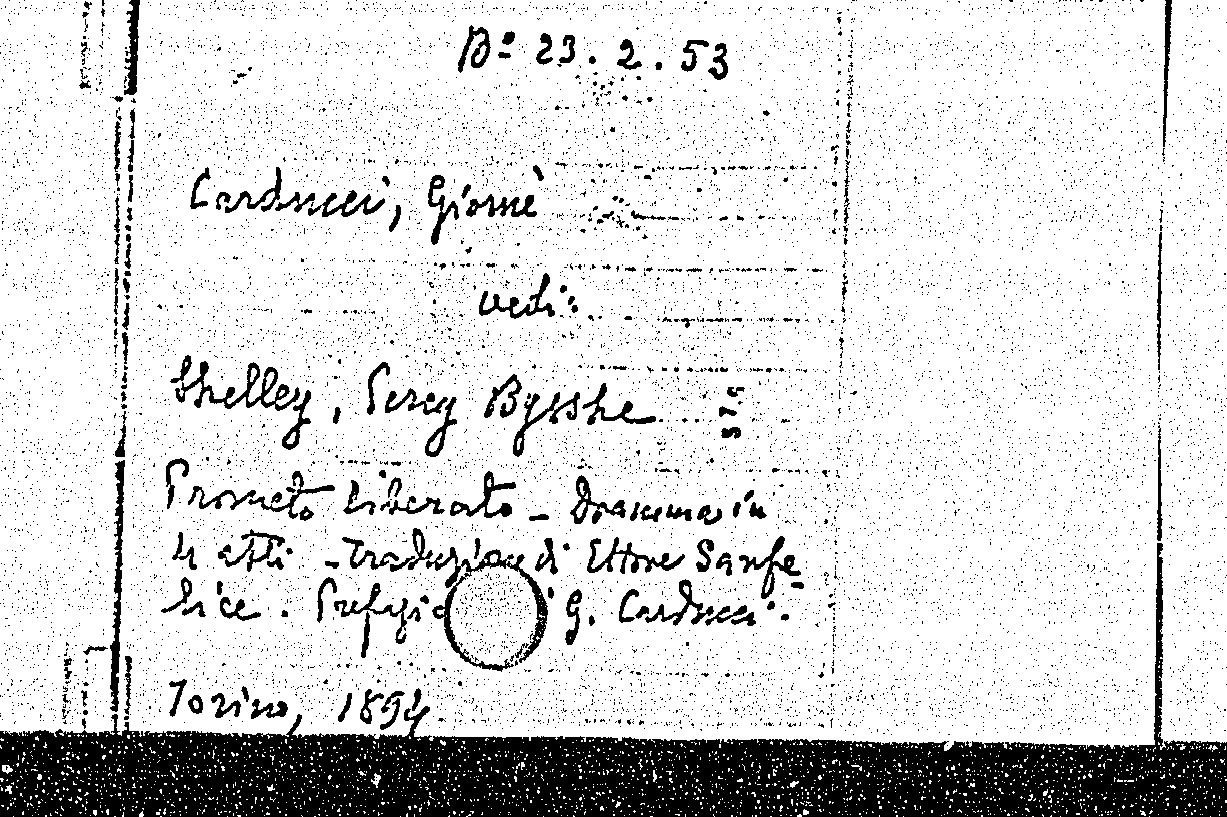 Bº 23.2.53
Carducci, Giosuè
vedi:
Shelley, Percy Bysshe
Prometo liberato - Dramma in
4 atti - Traduzione di Ettore Sanfe
lice. Prefazio i G. Carducci.
Torino, 1894